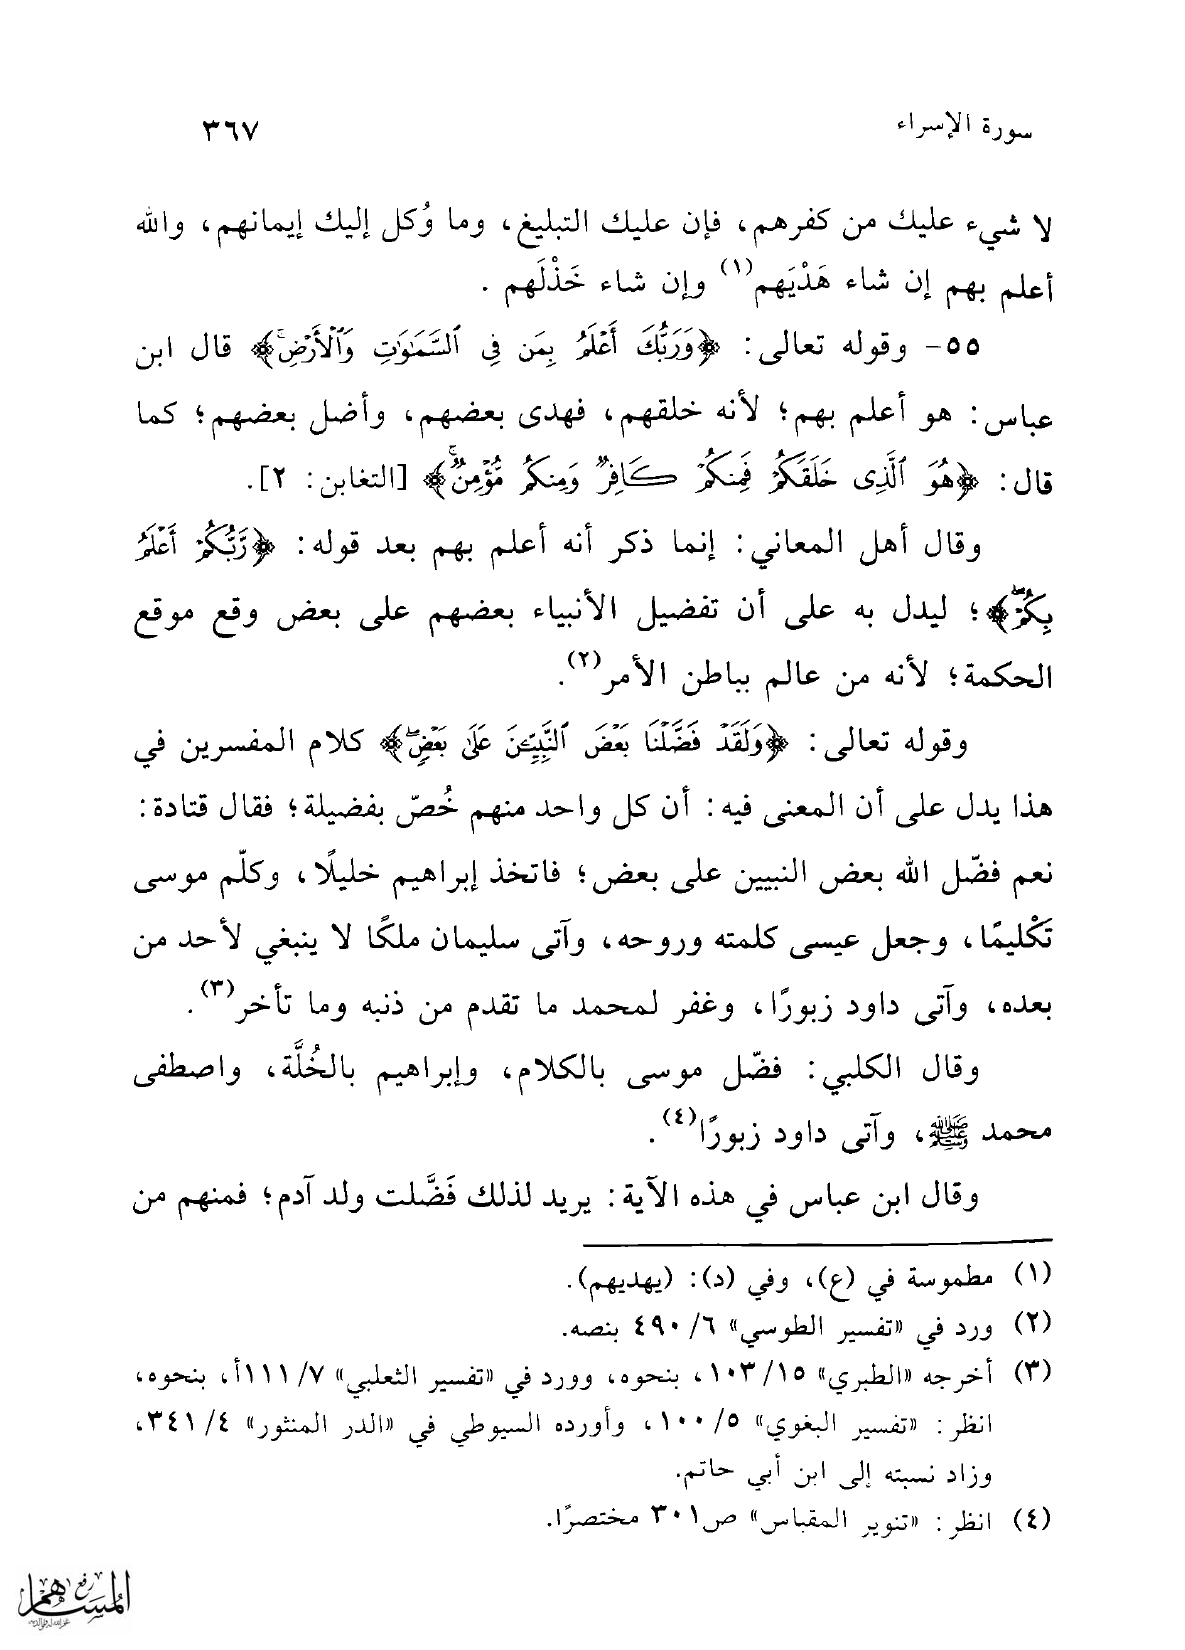 سورة الإسراء ٣٦٧
لا شيء عليك من كفرهم، فإن عليك التبليغ، وما وُكل إليك إيمانهم، والله
أعلم بهم إن شاء هَدْيَهم(١) وإن شاء خَذْلَهم .
٥٥- وقوله تعالى: ﴿وَرَبُّكَ أَعْلَمُ بِمَن فِي السَّمَٰوَٰتِ وَٱلْأَرْضِ﴾ قال ابن
عباس: هو أعلم بهم؛ لأنه خلقهم، فهدى بعضهم، وأضل بعضهم؛ كما
قال: ﴿هُوَ ٱلَّذِى خَلَقَكُمْ فَمِنكُمْ كَافِرٌ وَمِنكُم مُّؤْمِنٌ﴾ [التغابن: ٢].
وقال أهل المعاني: إنما ذكر أنه أعلم بهم بعد قوله: ﴿رَّبُّكُمْ أَعْلَمُ
بِكُمْ﴾؛ ليدل به على أن تفضيل الأنبياء بعضهم على بعض وقع موقع
الحكمة؛ لأنه من عالم بباطن الأمر(٢).
وقوله تعالى: ﴿وَلَقَدْ فَضَّلْنَا بَعْضَ ٱلنَّبِيِّۦنَ عَلَىٰ بَعْضٍ﴾ كلام المفسرين في
هذا يدل على أن المعنى فيه: أن كل واحد منهم خُصّ بفضيلة؛ فقال قتادة:
نعم فضّل الله بعض النبيين على بعض؛ فاتخذ إبراهيم خليلًا، وكلّم موسى
تَكْليمًا، وجعل عيسى كلمته وروحه، وآتى سليمان ملكًا لا ينبغي لأحد من
بعده، وآتى داود زبورًا، وغفر لمحمد ما تقدم من ذنبه وما تأخر(٣).
وقال الكلبي: فضّل موسى بالكلام، وإبراهيم بالخُلَّة، واصطفى
محمد ﷺ، وآتى داود زبورًا(٤).
وقال ابن عباس في هذه الآية: يريد لذلك فَضَّلت ولد آدم؛ فمنهم من
(١) مطموسة في (ع)، وفي (د): (يهديهم).
(٢) ورد في «تفسير الطوسي» ٦/ ٤٩٠ بنصه.
(٣) أخرجه «الطبري» ١٥/ ١٠٣، بنحوه، وورد في «تفسير الثعلبي» ٧/ ١١١أ، بنحوه،
انظر: «تفسير البغوي» ٥/ ١٠٠، وأورده السيوطي في «الدر المنثور» ٤/ ٣٤١،
وزاد نسبته إلى ابن أبي حاتم.
(٤) انظر: «تنوير المقباس» ص٣٠١ مختصرًا.
رفع
المساهم